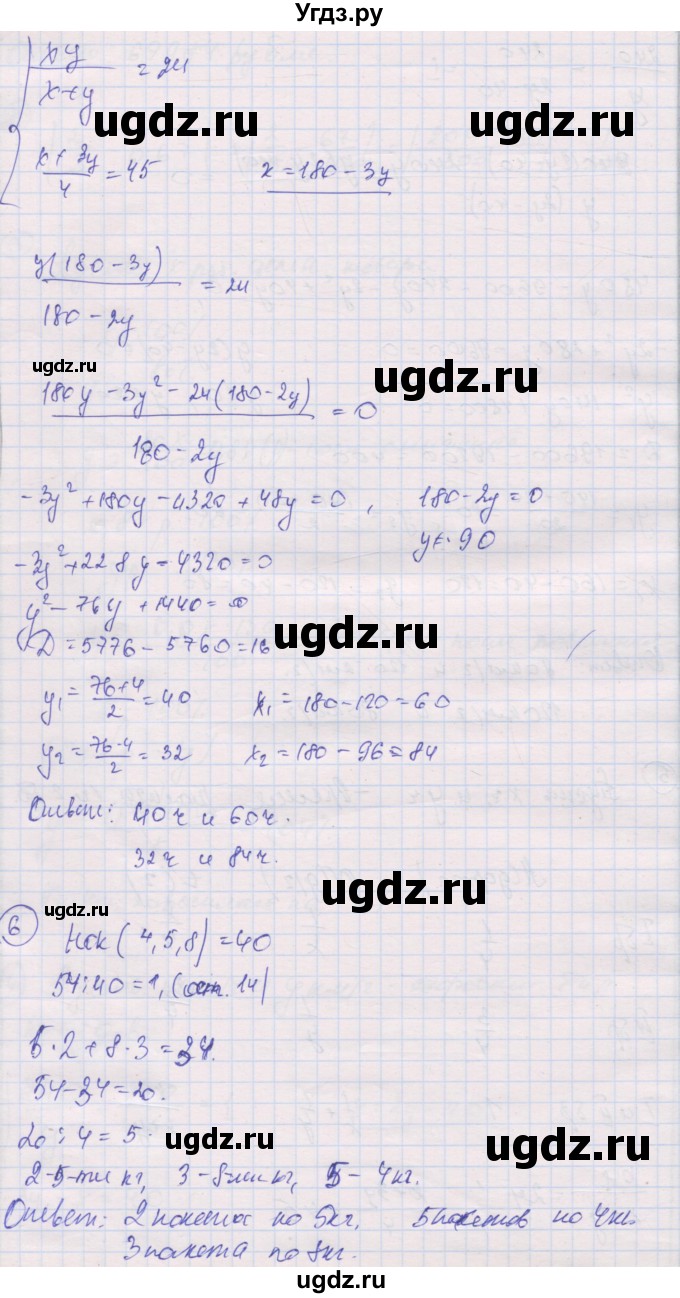 Угдз.ру
xy / x+y = 24
ugdz.ru ugdz.ru
x+3y / 4 = 45    x = 180 - 3y
y(180-3y) / 180-2y = 24
ugdz.ru
ugdz.ru
180y - 3y² - 24(180-2y) / 180-2y = 0
-3y² + 180y - 4320 + 48y = 0, 180-2y = 0
y ≠ 90
-3y² + 228y - 4320 = 0
y² - 76y + 1440 = 0
ugdz.ru
D = 5776 - 5760 = 16
y₁ = 76+4 / 2 = 40    x₁ = 180-120 = 60
y₂ = 76-4 / 2 = 32    x₂ = 180 - 96 = 84
Ответ: 40ч и 60ч.
32ч и 84ч.
ugdz.ru
ugdz.ru
6 НОК (4,5,8) = 40
54:40 = 1, (ост. 14)
5·2 + 8·3 = 34.
54-34=20.
20 : 4 = 5
ugdz.ru ugdz.ru
2-5-ти кг, 3-8-ми кг, 5-4кг.
Ответ: 2 пакета по 5кг, 5 пакетов по 4кг.
3 пакета по 8кг.
ugdz.ru